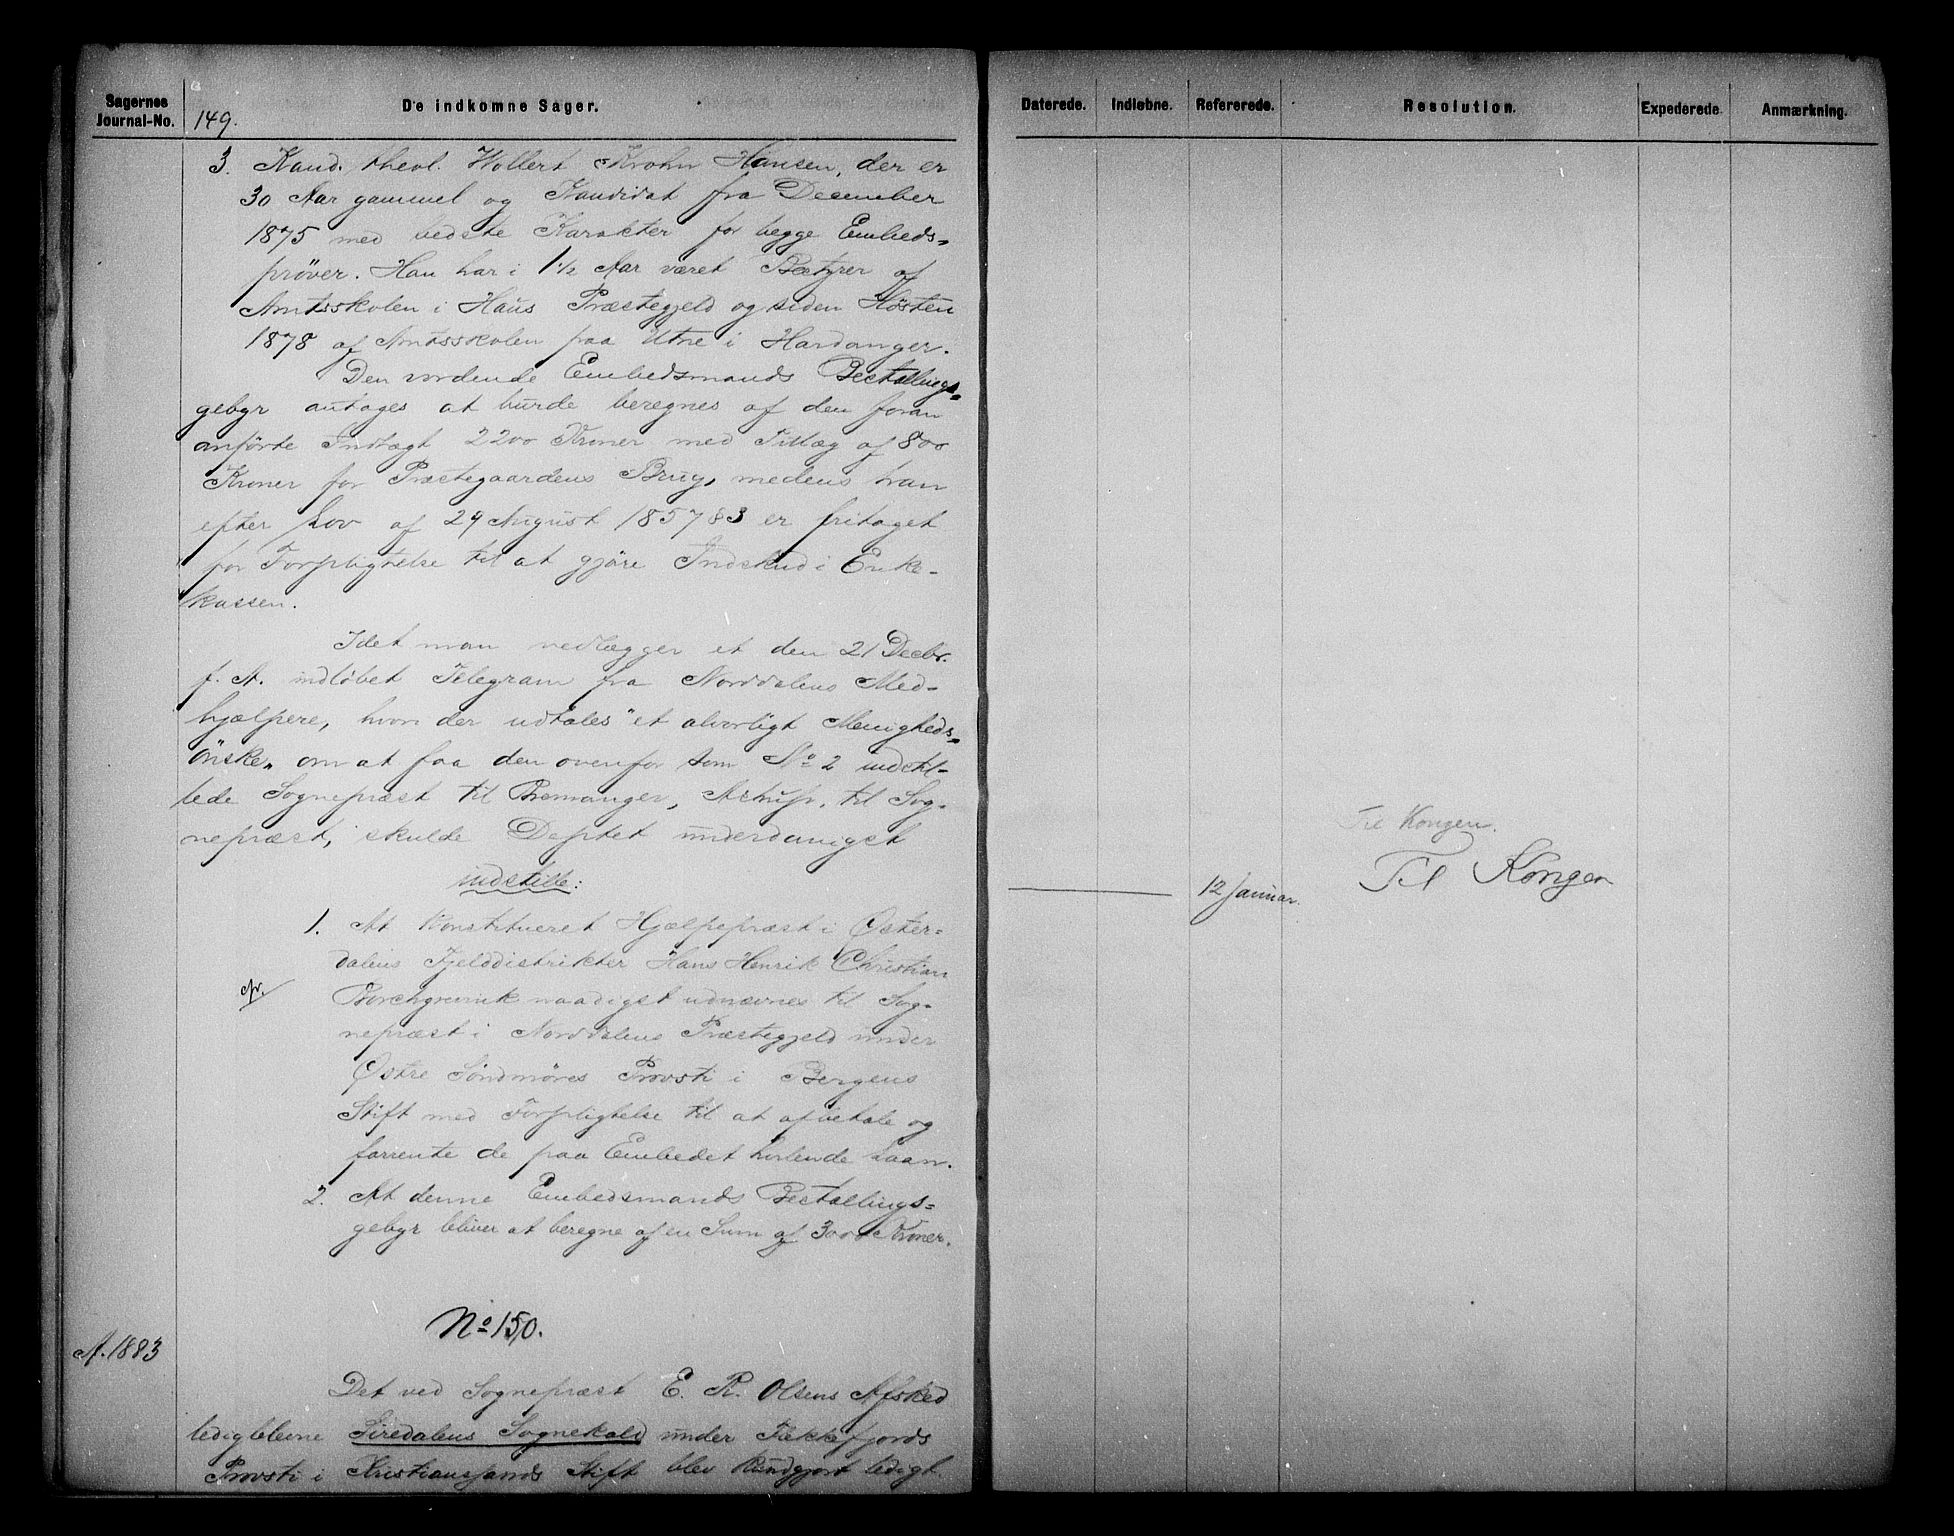 Sagernes
Journal-No.
De indkomne Sager.
149.
3. Kand. theol. Wollert Krohn Hansen, der er
30 Aar gammel og Kandidat fra December
1875 med bedste Karakter for begge Embeds-
prøver. Han har i 1½ Aar været Bestyrer af
Amtsskolen i Haus Præstegjeld og siden Høsten
1878 af Amtsskolen paa Utne i Hardanger.
Den vordende Embedsmands Bestallings-
gebyr antages at burde beregnes af den foran
anførte Indtægt 2200 Kroner med Tillæg af 800
Kroner for Præstegaardens Brug, medens han
efter Lov af 29 August 1857 § 3 er fritaget
for Forpligtelse til at gjøre Indskud i Enke-
kassen.
Idet man vedlægger et den 21 Decbr.
f. A. indløbet Telegram fra Norddalens Med-
hjælpere, hvori der udtales "et alvorligt Menigheds-
ønske" om at faa den ovenfor som No 2 indstil-
lede Sognepræst til Bremanger, Astrup, til Sog-
nepræst, skulde Deptet underdanigst
indstille:
1. At Konstitueret Hjælpepræst i Øster-
dalens Fjelddistrikter Hans Henrik Christian
cfr.
Borchgrevink naadigst udnævnes til Sog-
nepræst i Norddalens Præstegjeld under
Østre Søndmøres Provsti i Bergens
Stift med Forpligtelse til at afbetale og
forrente de paa Embedet hvilende Laan.
2. At denne Embedsmands Bestallings-
gebyr bliver at beregne af en Sum af 3000 Kroner.
No 150.
A. 1883
Det ved Sognepræst E. R. Olsens Afsked
ledigblevne Siredalens Sognekald under Flekkefjords
Provsti i Kristianssands Stift blev kundgjort ledigt
Daterede.
Indløbne.
Refererede.
Resolution.
Expederede.
Anmærkning.
Til Kongen.
12 Januar.
Til Kongen